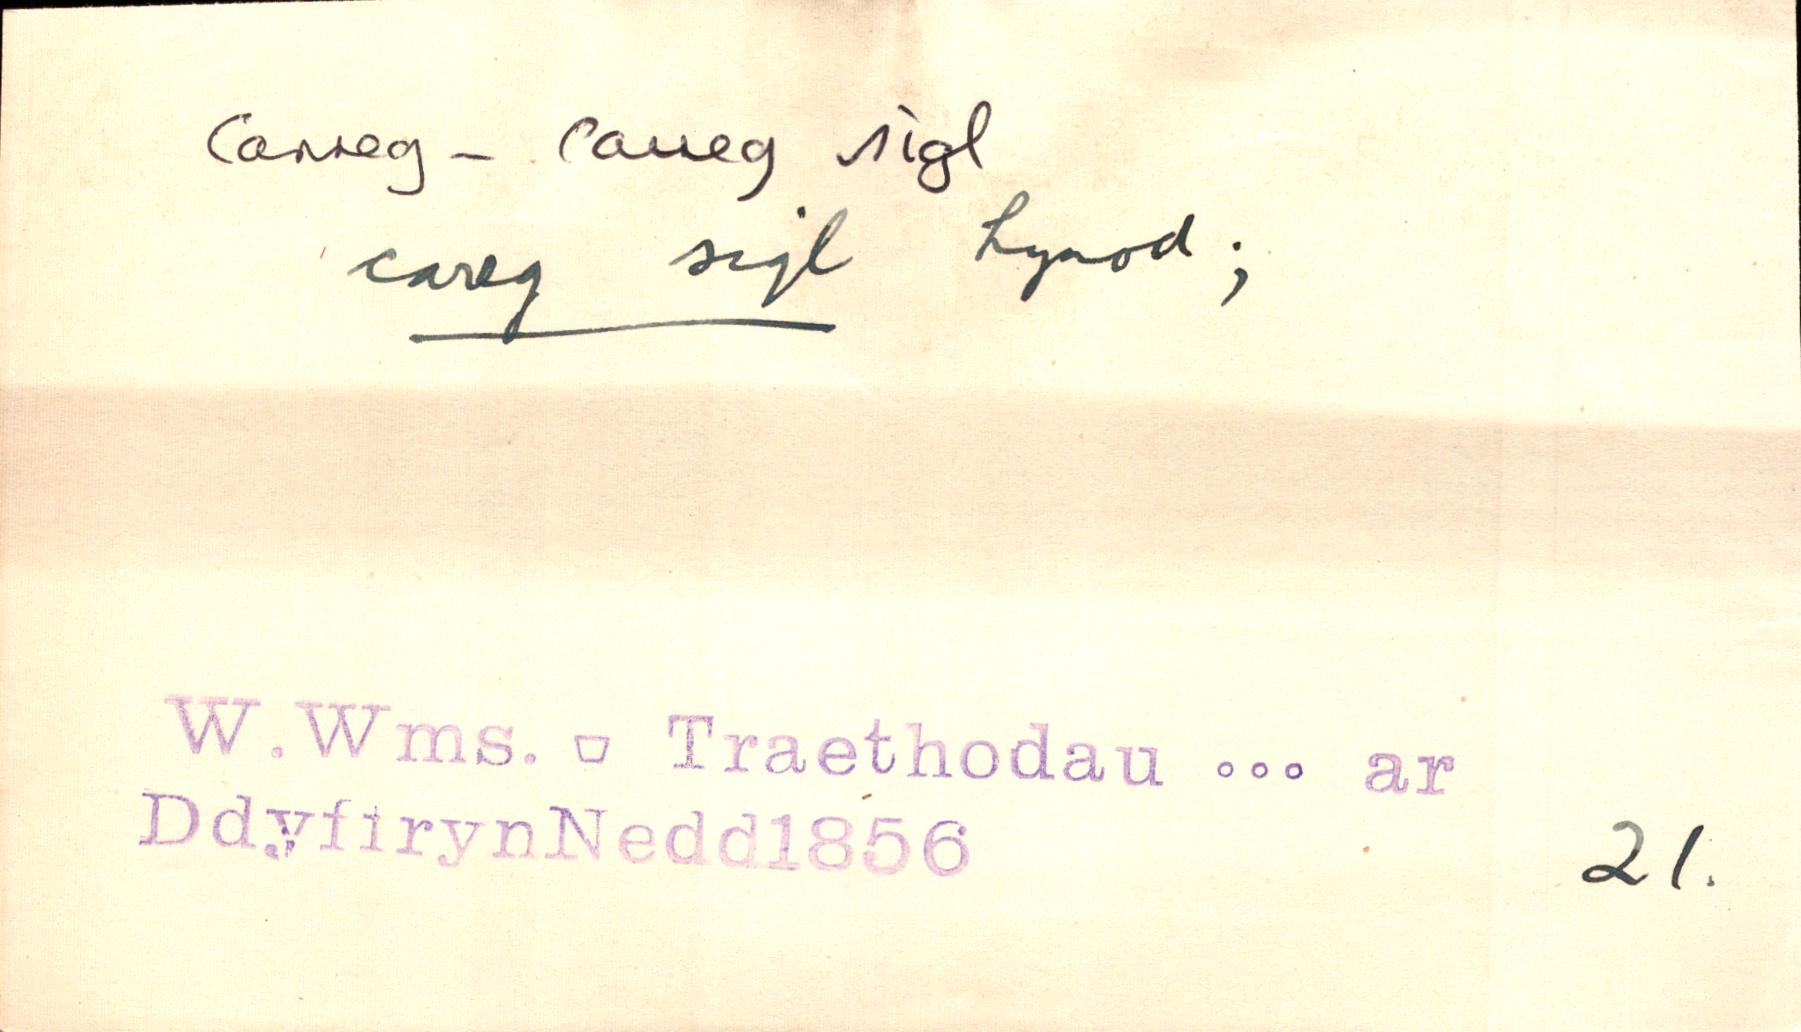 Carreg - Carreg sigl
careg sigl hynod;
W.Wms. - Traethodau ... ar
DdyffrynNedd1856
21.